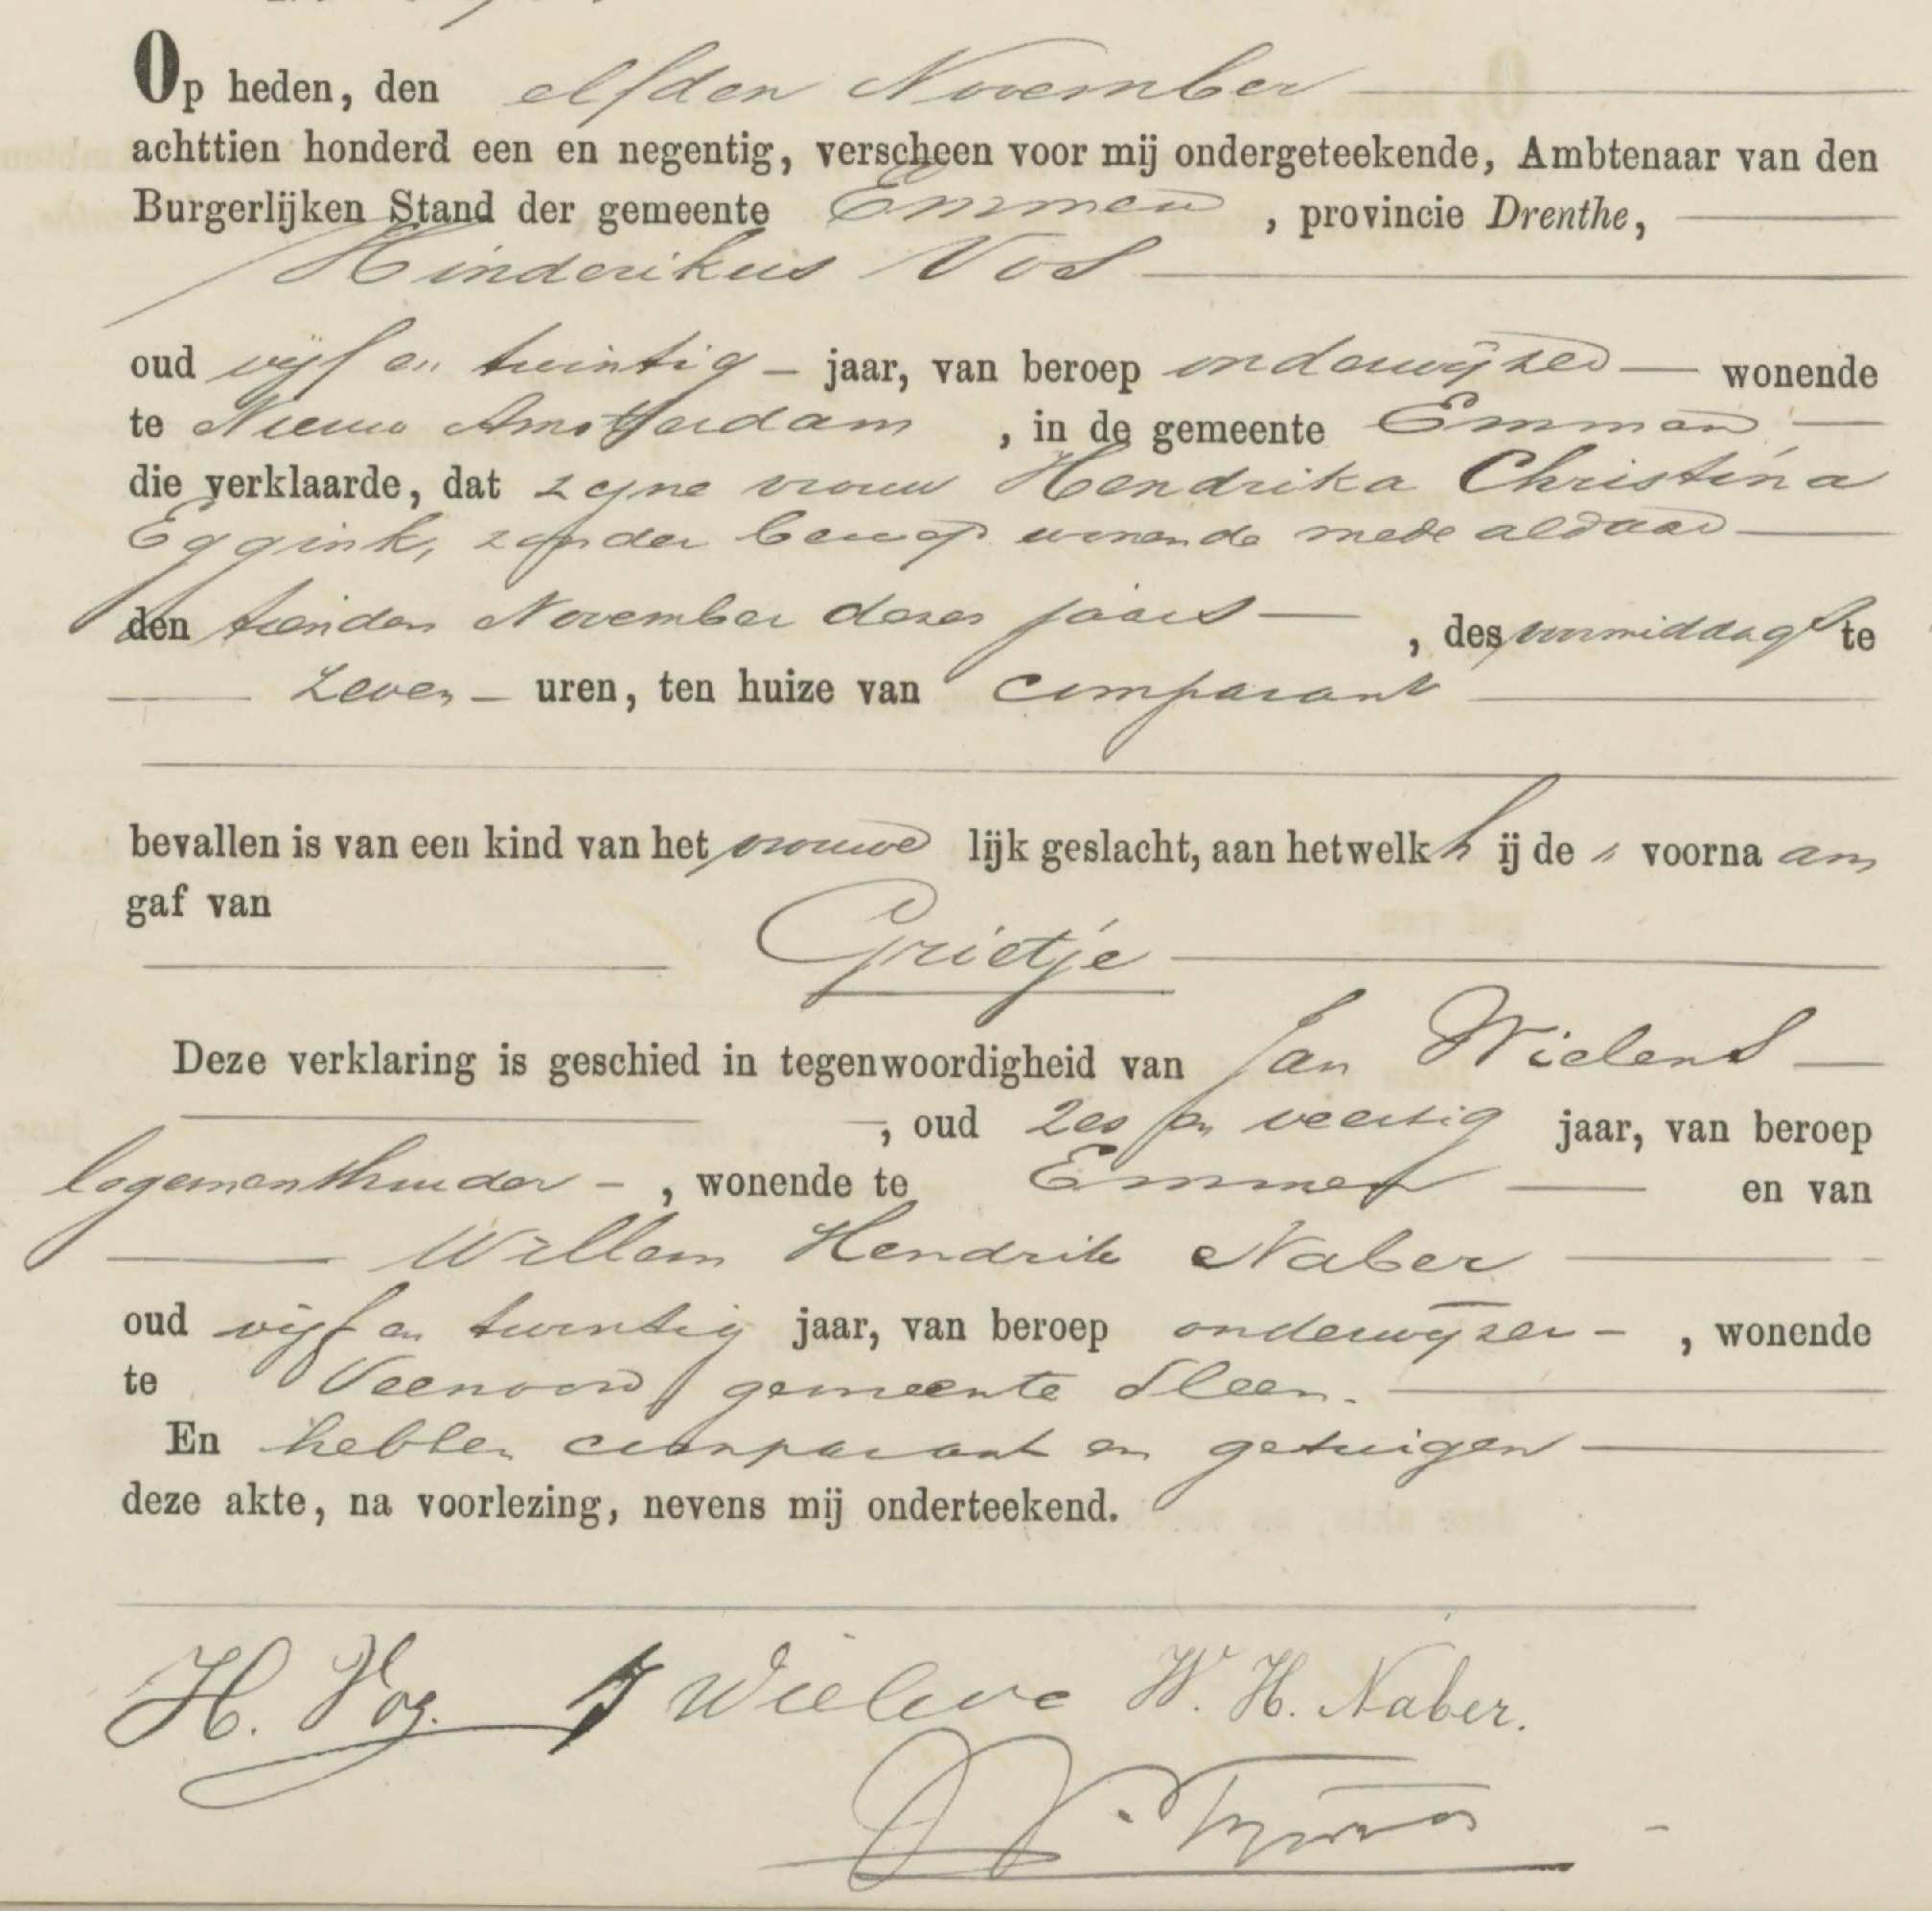 Op heden, den elfden November
achttien honderd een en negentig, verscheen voor mij ondergeteekende, Ambtenaar van den
Burgerlijken Stand der gemeente Emmen, provincie Drenthe,
Hinderikus Vos
oud vijf en twintig jaar, van beroep onderwijzer wonende
te Nieuw Amsterdam, in de gemeente Emmen
die verklaarde, dat zijne vrouw Hendrika Christina
Eggink, zonder beroep wonende mede aldaar
den tienden November dezes jaars, des voormiddags te
zeven uren, ten huize van comparant
bevallen is van een kind van het vrouwelijk geslacht, aan hetwelk hij de voornaam
gaf van
Grietje
Deze verklaring is geschied in tegenwoordigheid van Jan Wielens
, oud zes en veertig jaar, van beroep
logementhouder, wonende te Emmen en van
Willem Hendrik Naber
oud vijf en twintig jaar, van beroep onderwijzer, wonende
te Veenoord gemeente Sleen.
En hebben comparant en getuigen
deze akte, na voorlezing, nevens mij onderteekend.
H. Vos. J Wielens W. H. Naber.